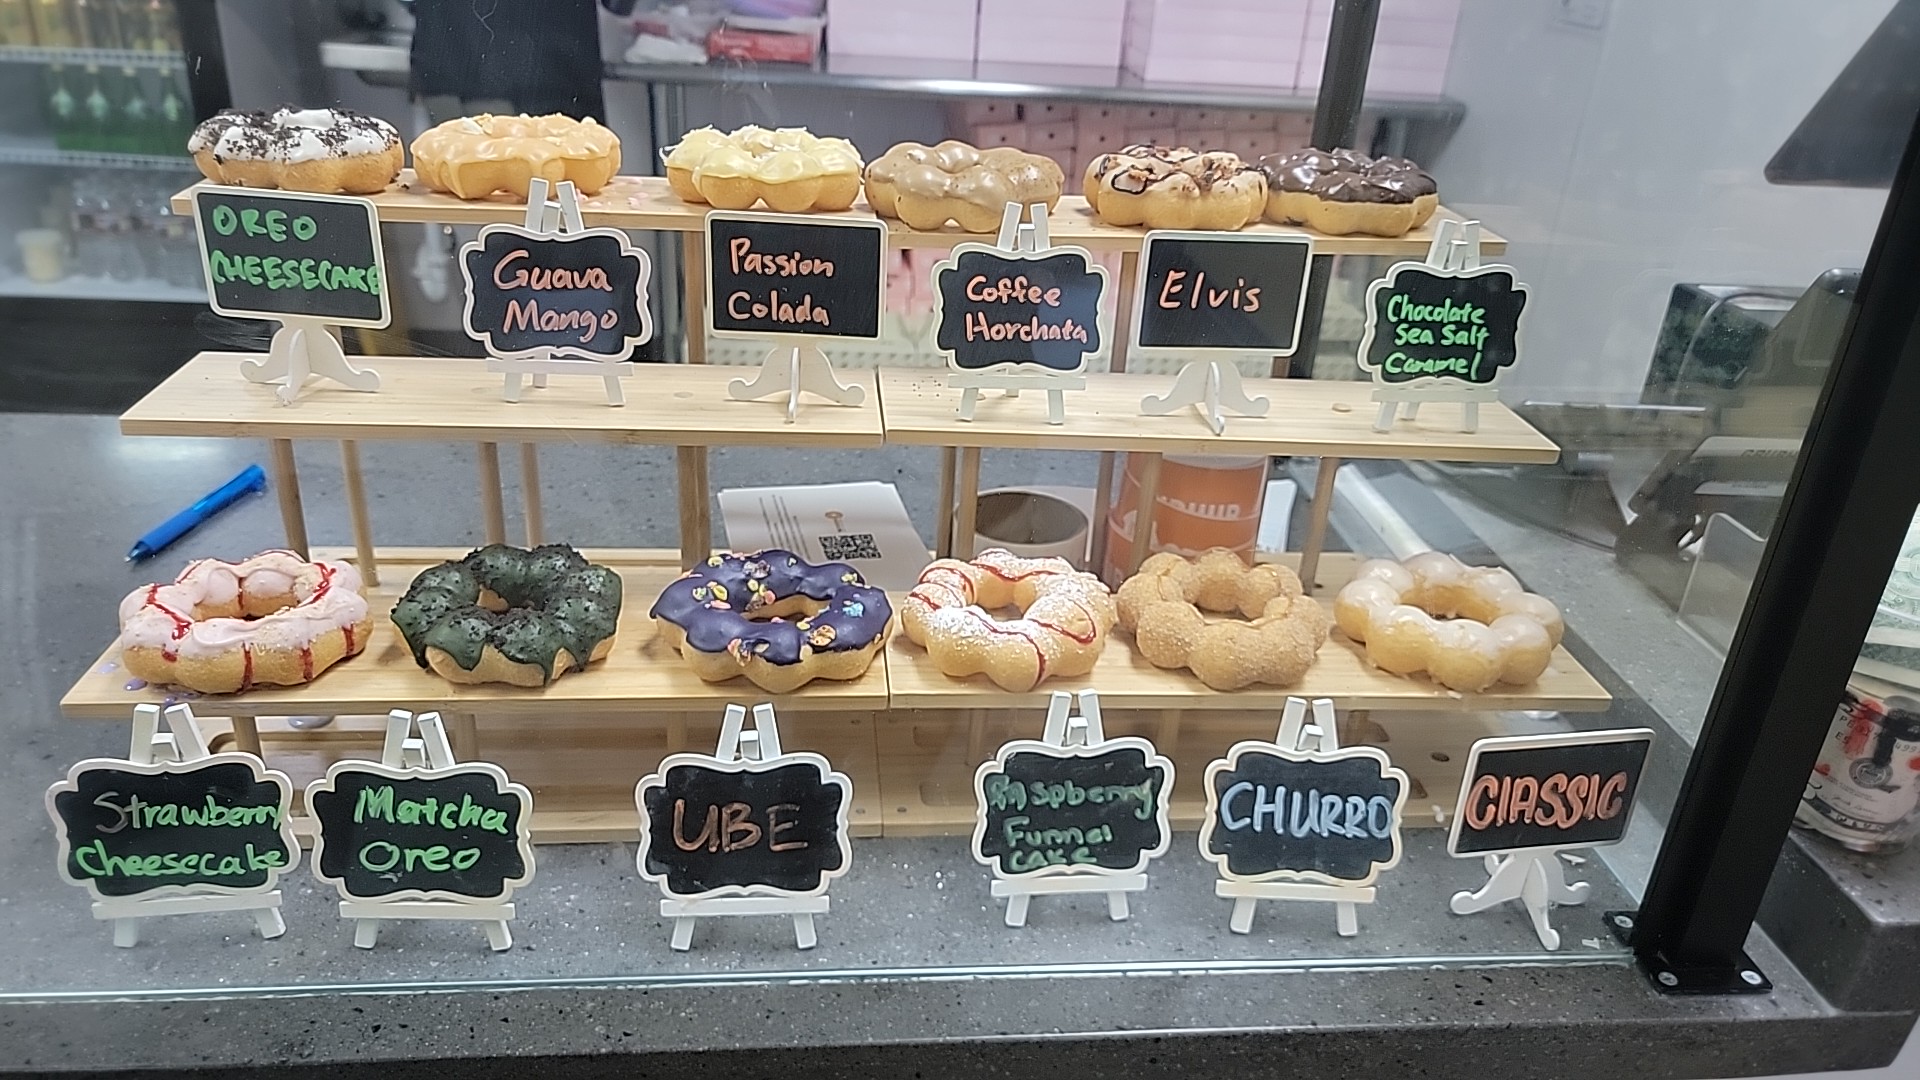 OREO
CHEESECAKE
Guava
Mango
Passion
Colada
Coffee
Horchata
Elvis
Chocolate
Sea Salt
Caramel
Strawberry
Cheesecake
Matcha
Oreo
UBE
Raspberry
Funnel
cake
CHURRO
ClASSIC